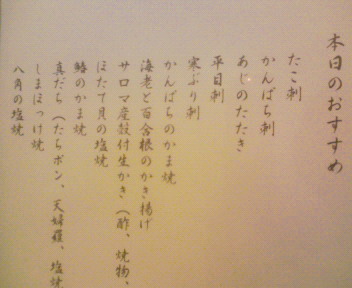 本日のおすすめ
たこ刺
かんぱち刺
あじのたたき
平目刺
寒ぶり刺
かんぱちのかま焼
海老と百合根のかき揚げ
サロマ産殻付生かき（酢、焼物、
ほたて貝の塩焼
鰤のかま焼
真だち（たちポン、天婦羅、塩焼
しまほっけ焼
八角の塩焼